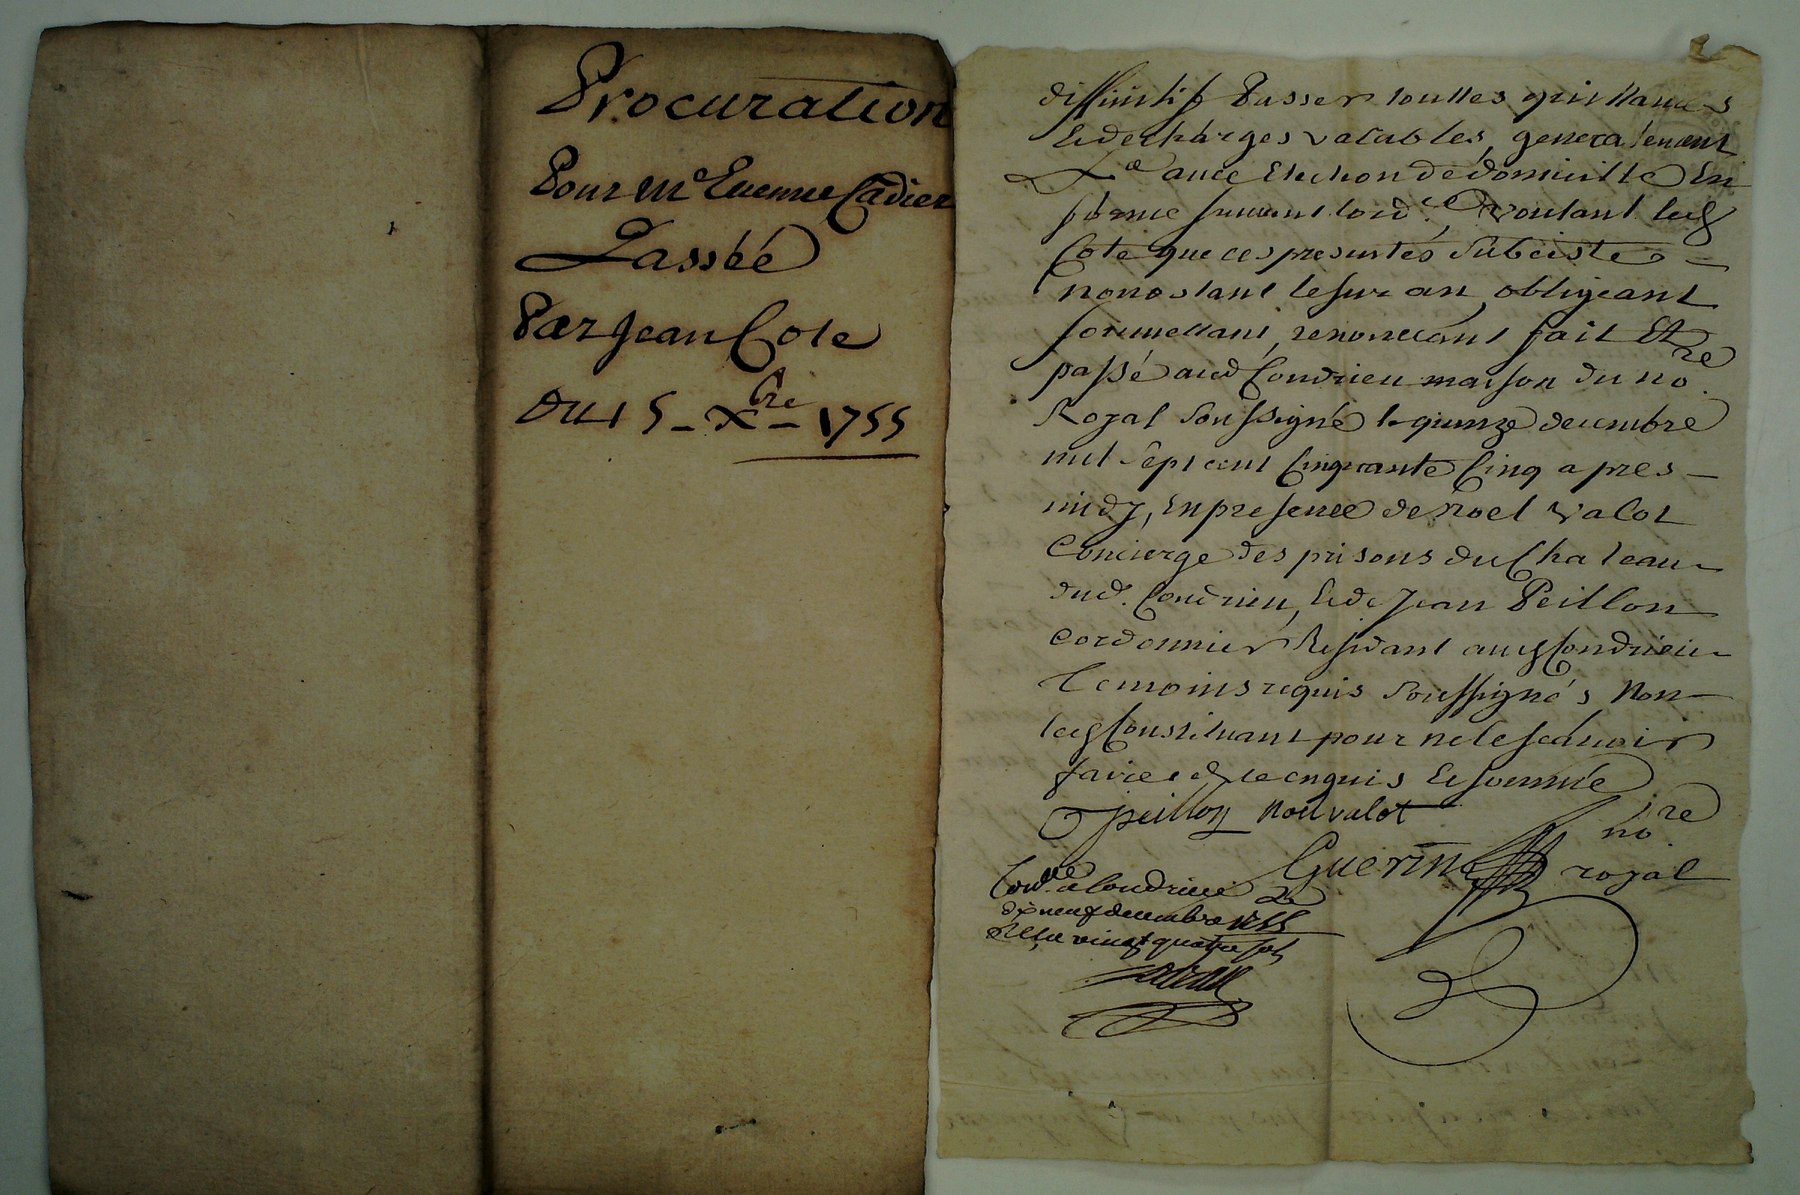 Procuration
Pour Me Etienne Cadier
Passéé
Par Jean Cote
Du 15 – Xbre – 1755
diffinitif Passer touttes quittances
Et decharges valables, generalement
&a avec Election de domicille En
forme suivant lord.ce voulant led
Cote que ces presentes Subciste –
nonostant le sur an, obligeant
soumettant, renoncant fait Et
passé aud Condrieu maison du no.re
Royal Soussigné le quinze decembre
mil sept cent Cinquante Cinq apres –
midy, En presence de Noel Valot
Concierge des prisons du Chateau
dud. Condrieu, Et de Jean Peillon
Cordonnier Residant aud Condrieu
temoins requis Soussignés Non
led Constituant pour ne le scavoir
faire de ce enquis Et sommé
J peillon Noel valot
Guerin no.re royal
Con.lle a Condrieu Le
dix neuf decembre 1755
Reçu vingt quatre sols